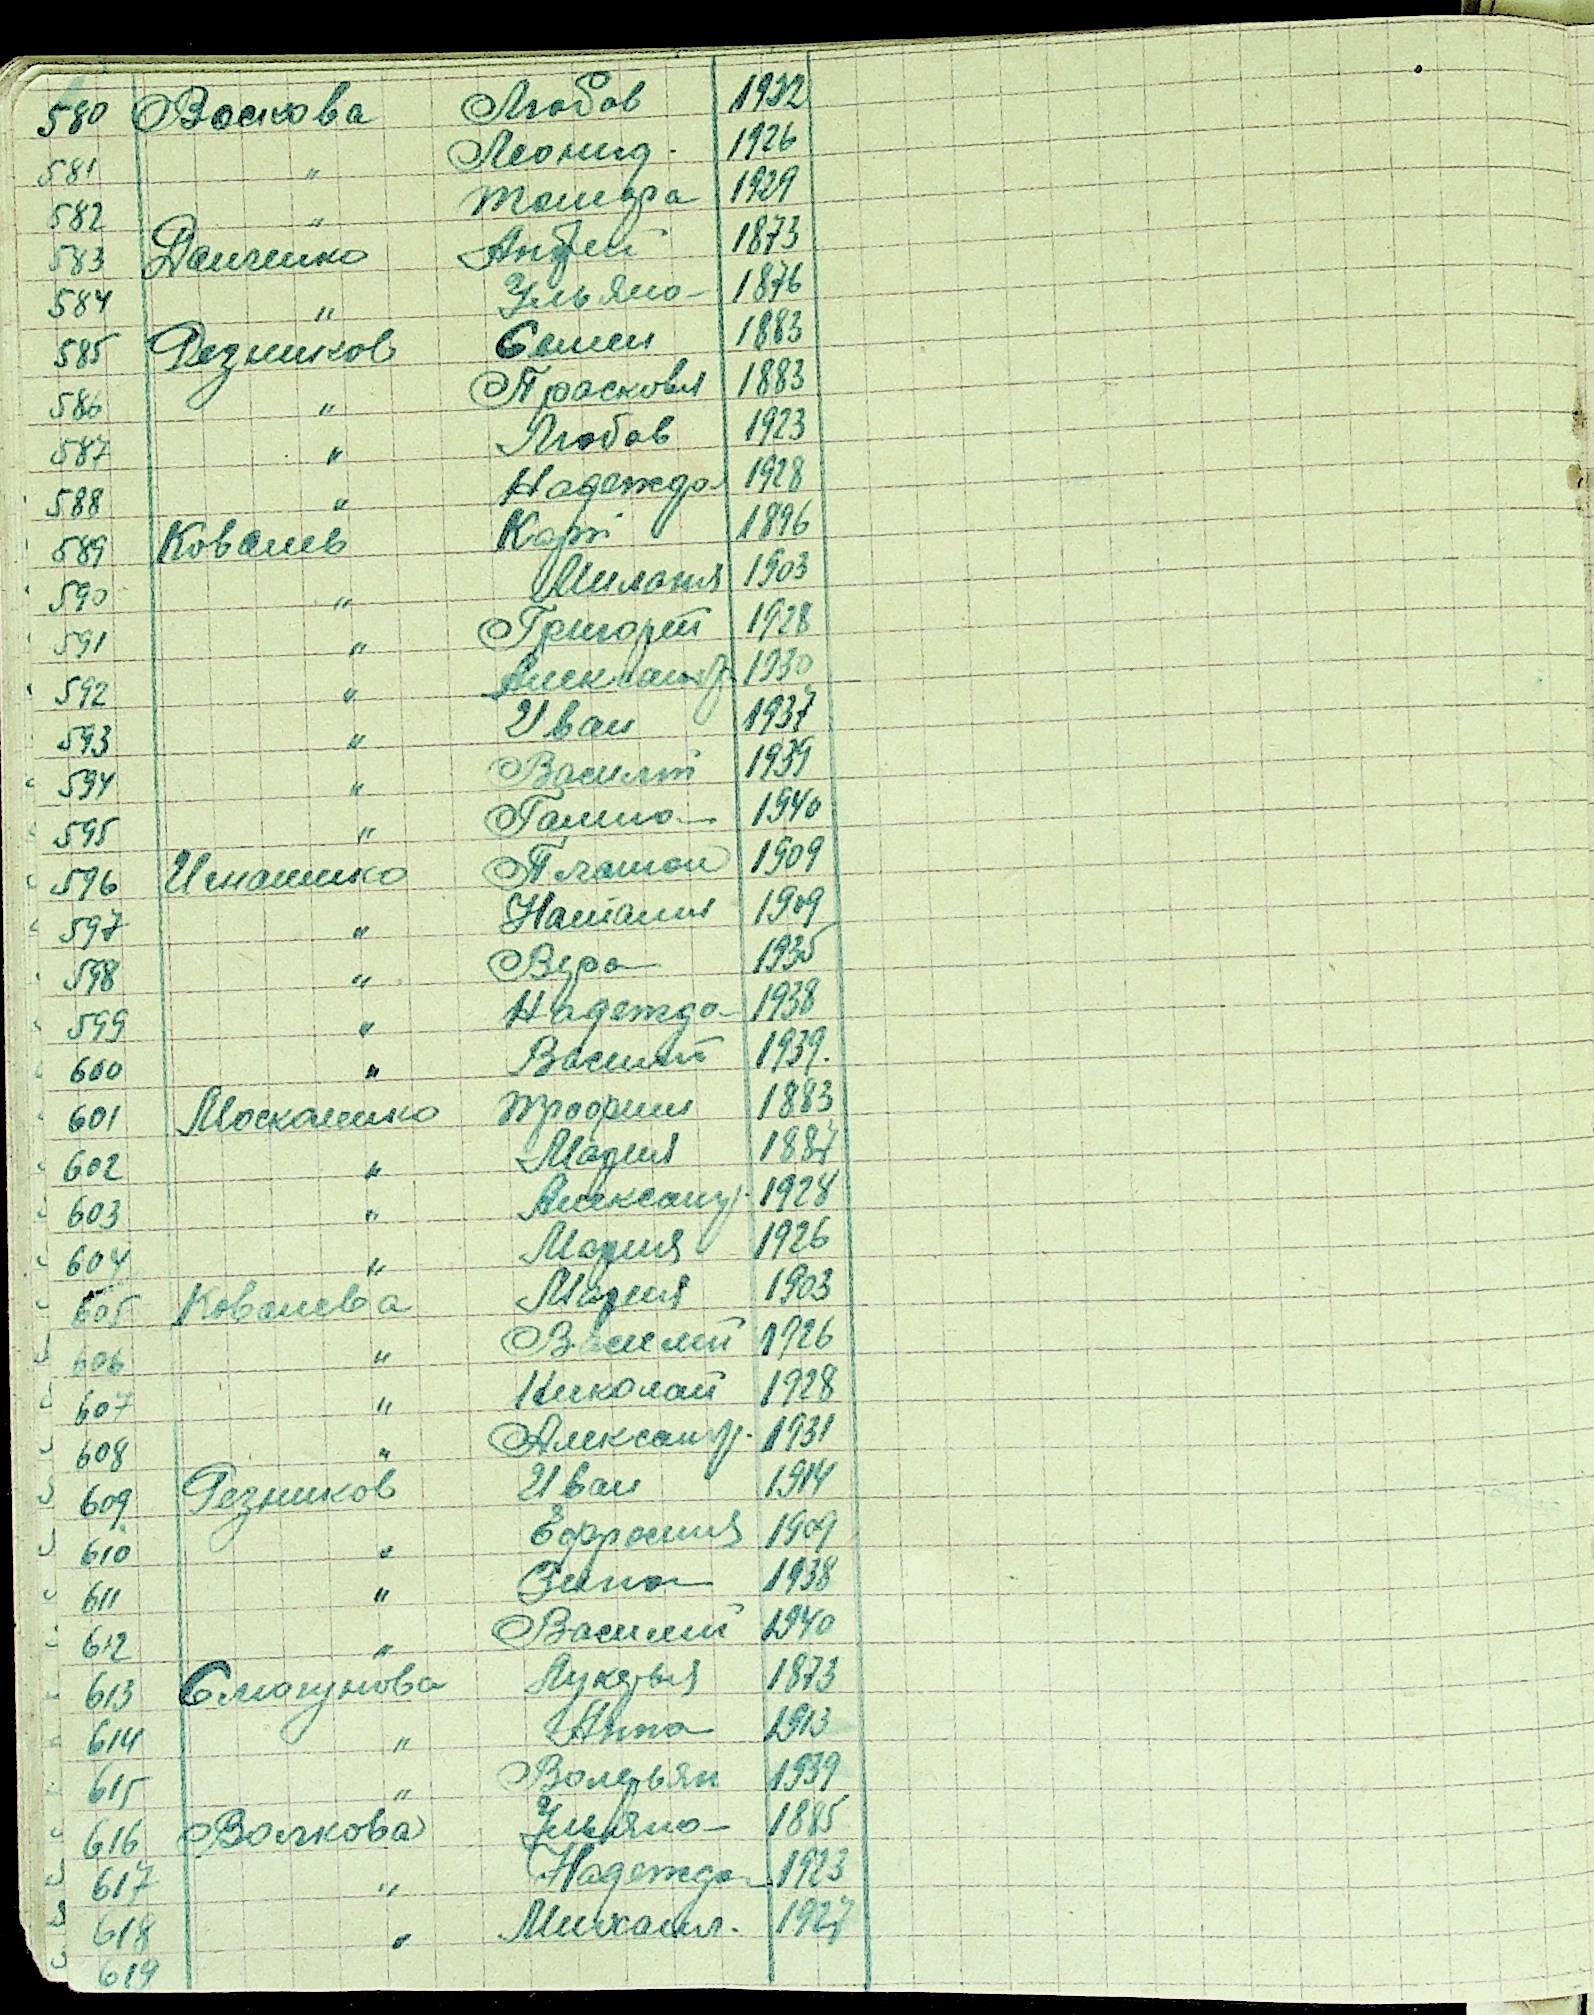 580 Воскова Любов 1932
581 " Леонид. 1926
582 " Томара 1929
583 Данченко Андрей 1873
584 " Ульяна 1876
585 Резников Семен 1883
586 " Прасковия 1883
587 " Любов 1923
588 " Надежда 1928
589 Ковалев Карп 1896
590 " Милания 1903
591 " Григорий 1928
592 " Александр. 1930
593 " Иван 1937
594 " Василий 1939
595 " Галина 1940
596 Игнатенко Платон 1909
597 " Наталия 1909
598 " Вера 1935
599 " Надежда 1938
600 " Василий 1939.
601 Москаленко Трофим 1883
602 " Мария 1887
603 " Александр. 1928
604 " Мария 1926
605 Ковалева Мария 1903
606 " Василий 1926
607 " Николай 1928
608 " Александр. 1931
609 Резников Иван 1914
610 " Ефросиния 1909
611 " Зина 1938
612 " Василий 1940
613 Смогунова Лукерья 1873
614 " Анна 1913
615 " Валерьян 1939
616 Волкова Ульяна 1885
617 " Надежда 1923
618 " Михаил. 1927
619